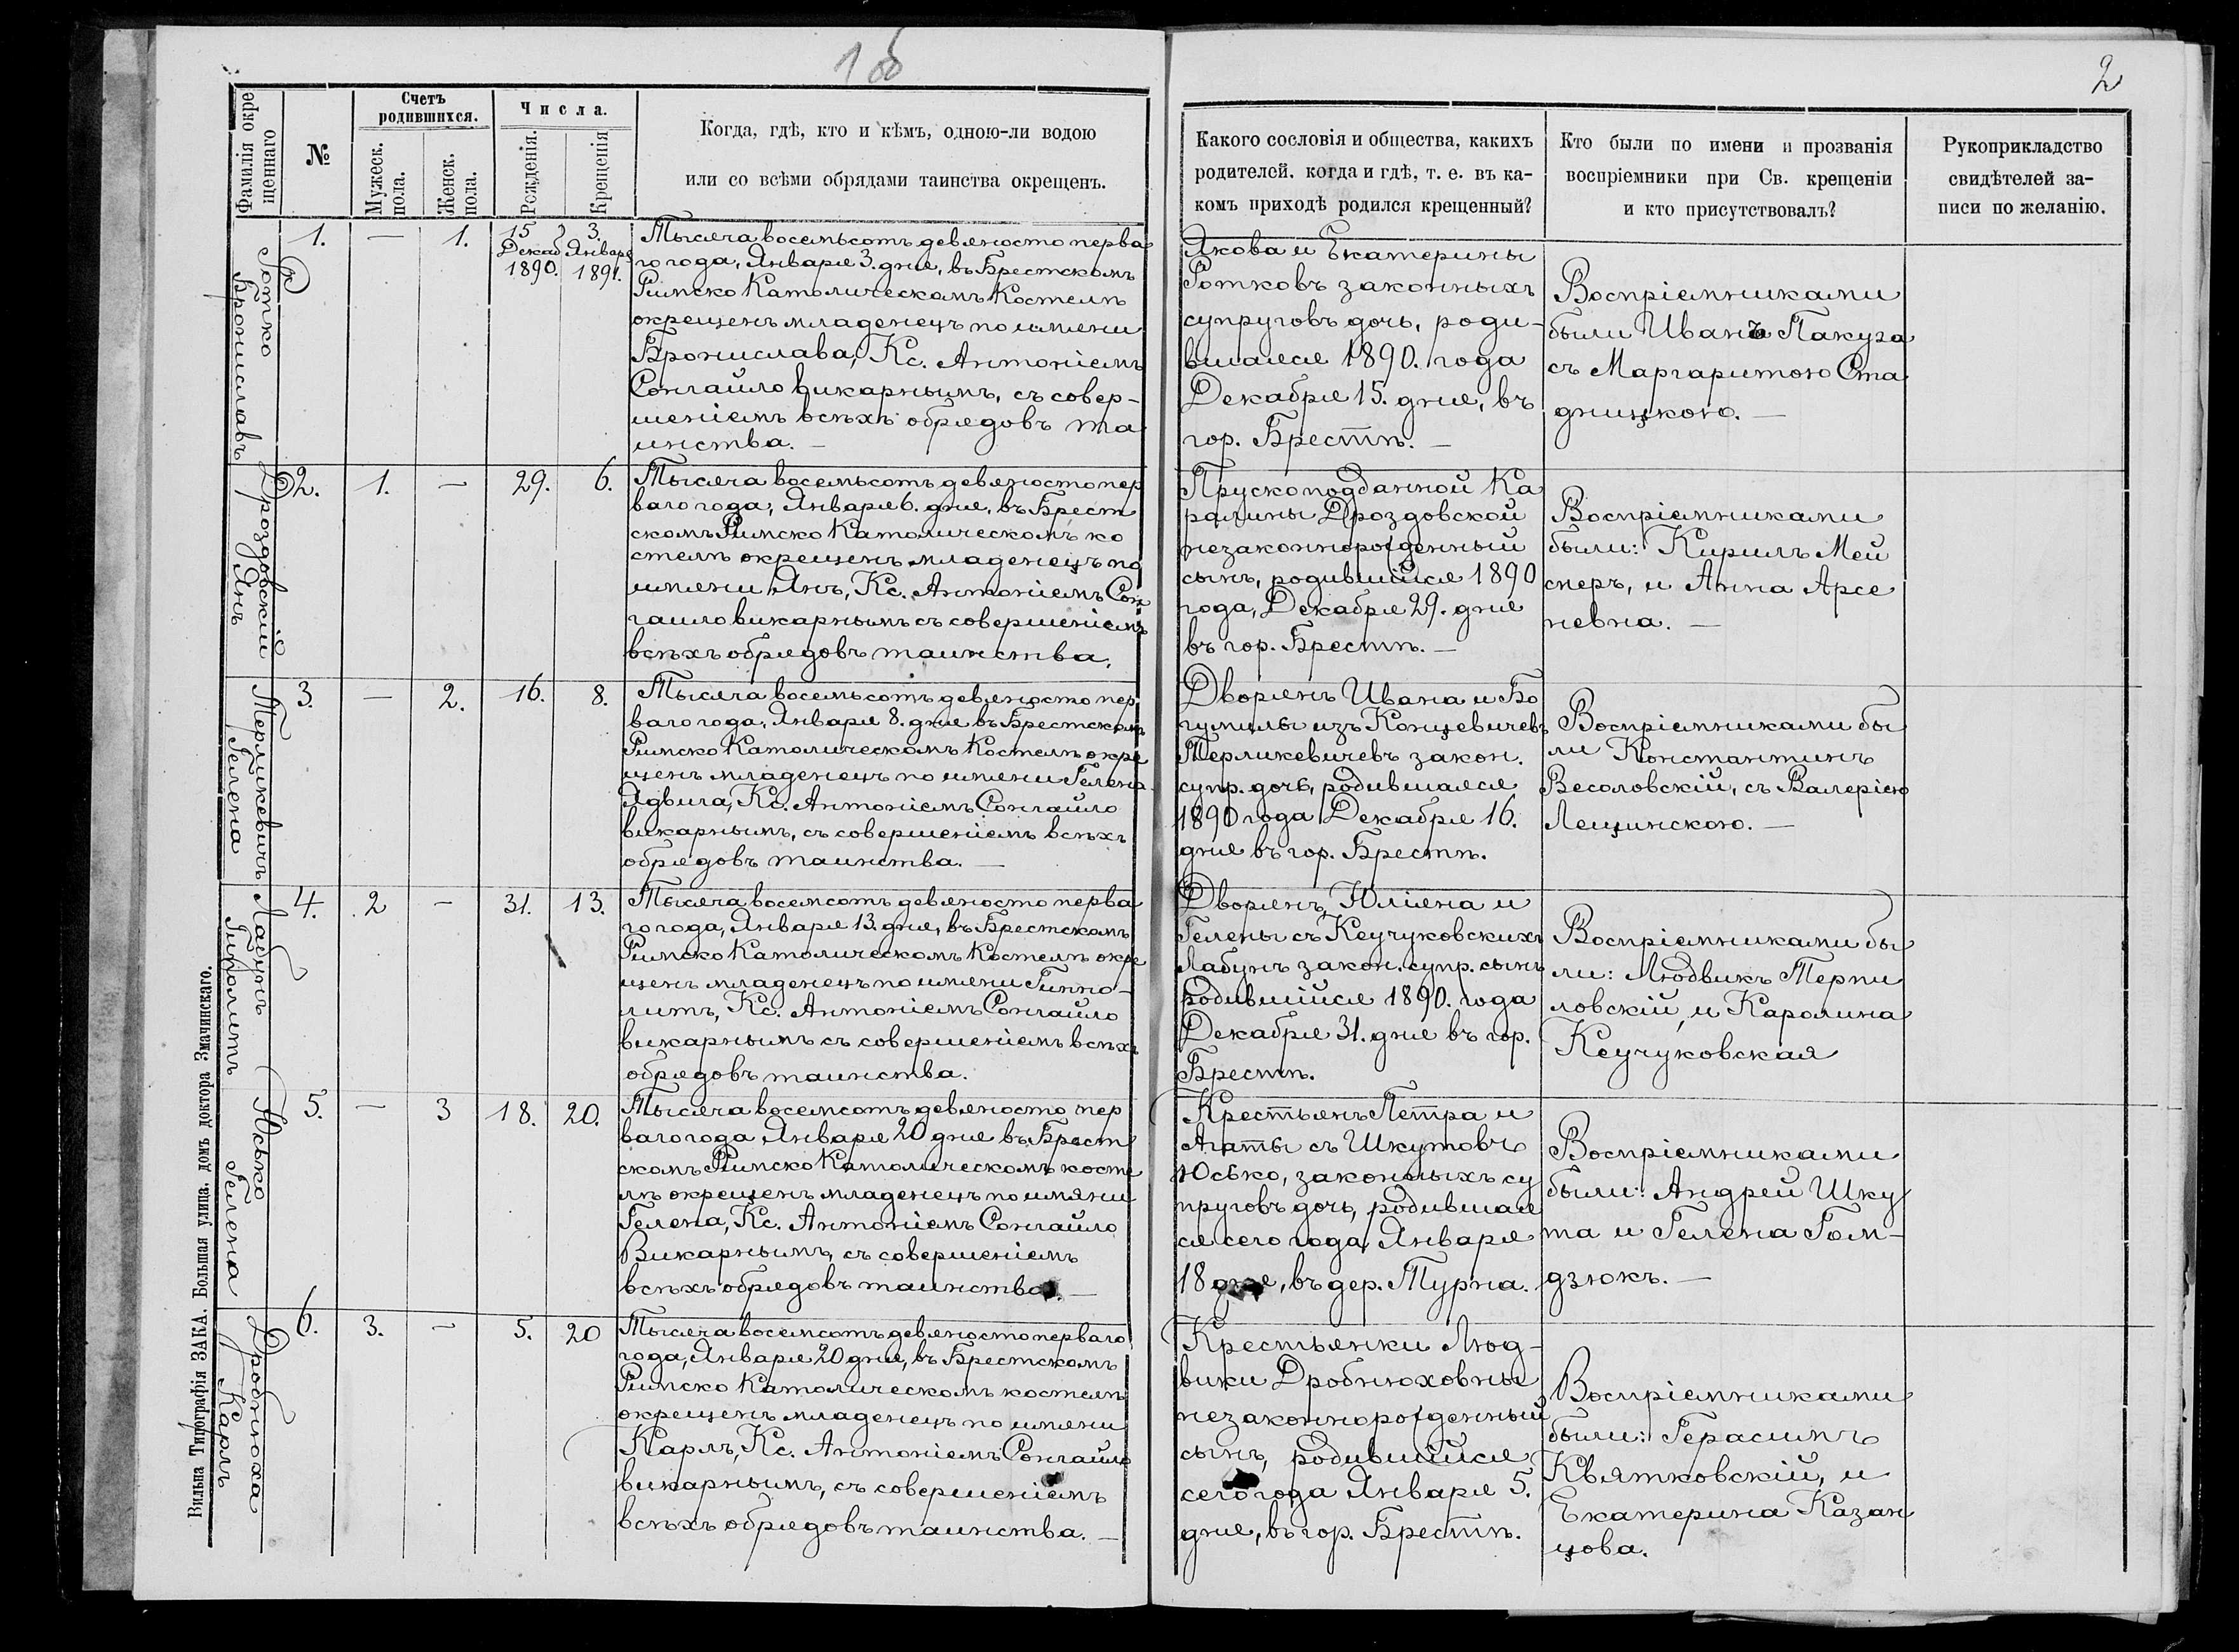 1об
2
Фамилія окре
щеннаго
№
Счетъ
родившихся.
Мужеск.
пола.
Женск.
пола.
Числа.
Рожденія.
Крещенія
Когда, гдѣ, кто и кѣмъ, одною-ли водою
или со всѣми обрядами таинства окрещенъ.
Какого сословія и общества, какихъ
родителей. когда и гдѣ, т. е. въ ка-
комъ приходѣ родился крещенный?
Кто были по имени и прозванія
воспріемники при Св. крещеніи
и кто присутствовалъ?
Рукоприкладство
свидѣтелей за-
писи по желанію.
Ротко
Брониславъ
1. — 1. 15 3.
Декаб Январ
1890. 1891.
Тысяча восемьсотъ девяносто перва
го года, Января 3. дня, въ Брестскомъ
Римско Католическомъ Костелѣ
окрещенъ младенецъ по имени
Бронислава, Кс. Антоніемъ
Сонгайло викарнымъ, съ совер-
шеніемъ всѣхъ обрядовъ та
инства. —
Якова и Екатерины
Ротковъ законныхъ
супруговъ дочь, роди-
вшаяся 1890. года
Декабря 15. дня, въ
гор. Брестѣ. —
Воспріемниками
были Иванъ Пакуза
съ Маргаритою Ста
дницкою. —
Дроздовскій
Янъ
2. 1. — 29. 6.
Тысяча восемьсотъ девяносто пер
ваго года, Января 6. дня, въ Брест
скомъ Римско Католическомъ ко
стелѣ окрещенъ младенецъ по
имени Янъ, Кс. Антоніемъ Сон
гайло викарнымъ съ совершеніемъ
всѣхъ обрядовъ таинства.
Прускоподданной Ка
ралины Дроздовской
незаконнорожденный
сынъ, родившійся 1890
года, Декабря 29. дня
въ гор. Брестѣ. —
Воспріемниками
были: Кирилъ Мей
снеръ, и Анна Арсе
невна. —
Терликевичъ
Гелена
3. — 2. 16. 8.
Тысяча восемьсотъ девяносто пер
ваго года, Января 8. дня въ Брестскомъ
Римско Католическомъ Костелѣ окре
щенъ младенецъ по имени Гелена-
Ядвига, Кс. Антоніемъ Сонгайло
викарнымъ, съ совершеніемъ всѣхъ
обрядовъ таинства. —
Дворянъ Ивана и Бо
гумилы изъ Концевичевъ
Терликевичевъ закон.
супр. дочь, родившаяся
1890 года Декабря 16.
дня въ гор. Брестѣ.
Воспріемниками бы
ли Константинъ
Весоловскій, съ Валеріею
Лещинскою. —
Лабунъ
Гиполитъ
4. 2 — 31. 13.
Тысяча восемсотъ девяносто перва
го года, Января 13. дня, въ Брестскомъ
Римско Католическомъ Костелѣ окре
щенъ младенецъ по имени Гиппо-
литъ, Кс. Антоніемъ Сонгайло
викарнымъ съ совершеніемъ всѣхъ
обрядовъ таинства.
Дворянъ, Юліяна и
Гелены съ Кеучуковскихъ
Лабунъ закон. супр. сынъ
родившійся 1890. года
Декабря 31. дня въ гор.
Брестѣ.
Воспріемниками бы
ли: Людвикъ Терпи
ловскій, и Каролина
Кеучуковская
Юсько
Гелена
5. — 3 18. 20.
Тысяча восемсотъ девяносто пер
ваго года Января 20 дня въ Брест
скомъ Римско Католическомъ косте
лѣ окрещенъ младенецъ по имяни
Гелена, Кс. Антоніемъ Сонгайло
Викарнымъ, съ совершеніемъ
всѣхъ обрядовъ таинства. —
Крестьянъ Петра и
Агаты съ Шкутовъ
Юсько, законныхъ су
пруговъ дочь, родившая
ся сего года, Января
18 дня, въ дер. Турна.
Воспріемниками
были: Андрей Шку
та и Гелена Гом-
дзюкъ. —
Дробнюха
Карлъ
6. 3. — 5. 20
Тысяча восемсотъ девяносто перваго
года, Января 20 дня, въ Брестскомъ
Римско Католическомъ костелѣ
окрещенъ младенецъ по имени
Карлъ, Кс. Антоніемъ Сонгайло
викарнымъ, съ совершеніемъ
всѣхъ обрядовъ таинства. —
Крестьянки Люд-
вики Дробнюховны
незаконнорожденный
сынъ, родившійся
сего года Января 5.
дня, въ гор. Брестѣ.
Воспріемниками
были: Герасимъ
Квятковскій, и
Екатерина Казан
цова.
Вильна Типографія ЗАКА. Большая улица, домъ доктора Змачинскаго.